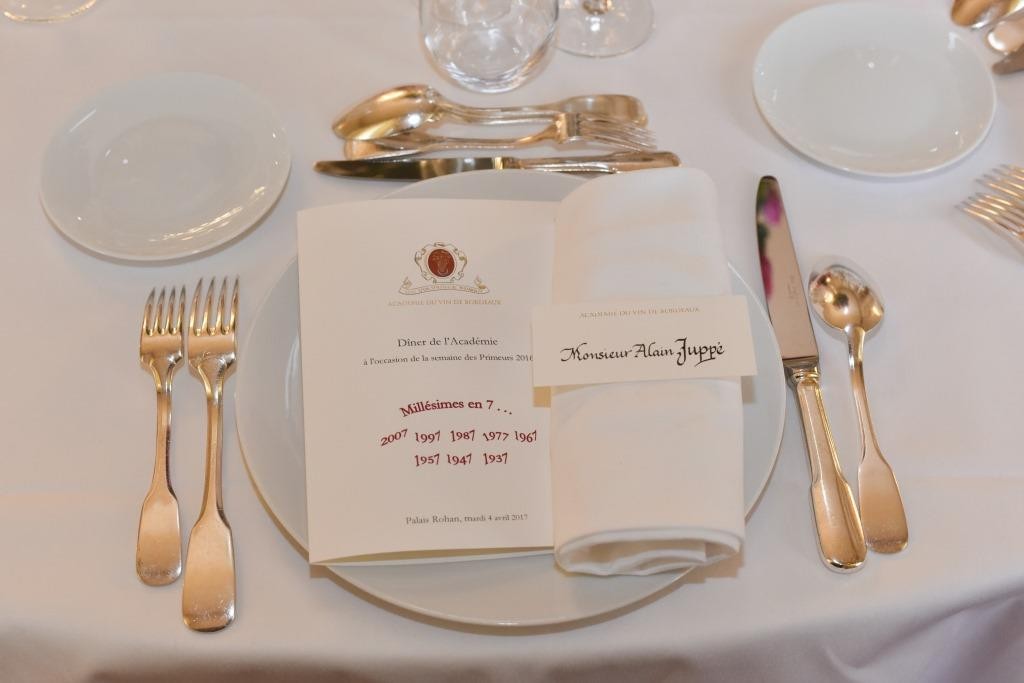 ACADEMIE DU VIN DE BORDEAUX
Dîner de l'Académie
à l'occasion de la semaine des Primeurs 2016
Millésimes en 7 . . .
2007 1997 1987 1977 1967
1957 1947 1937
Palais Rohan, mardi 4 avril 2017
ACADEMIE DU VIN DE BORDEAUX
Monsieur Alain Juppé